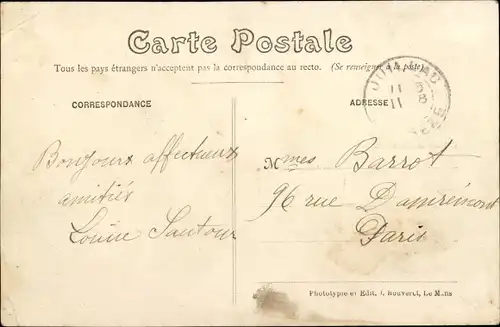 Carte Postale
Tous les pays étrangers n'acceptent pas la correspondance au recto. (Se renseigner à la poste)
CORRESPONDANCE
ADRESSE
Bonjours affectueux
amitiés
Louise
Mmes Barrot
96 rue Damrémont
Paris
Phototypie et Edit. J. Bouveret, Le Mans